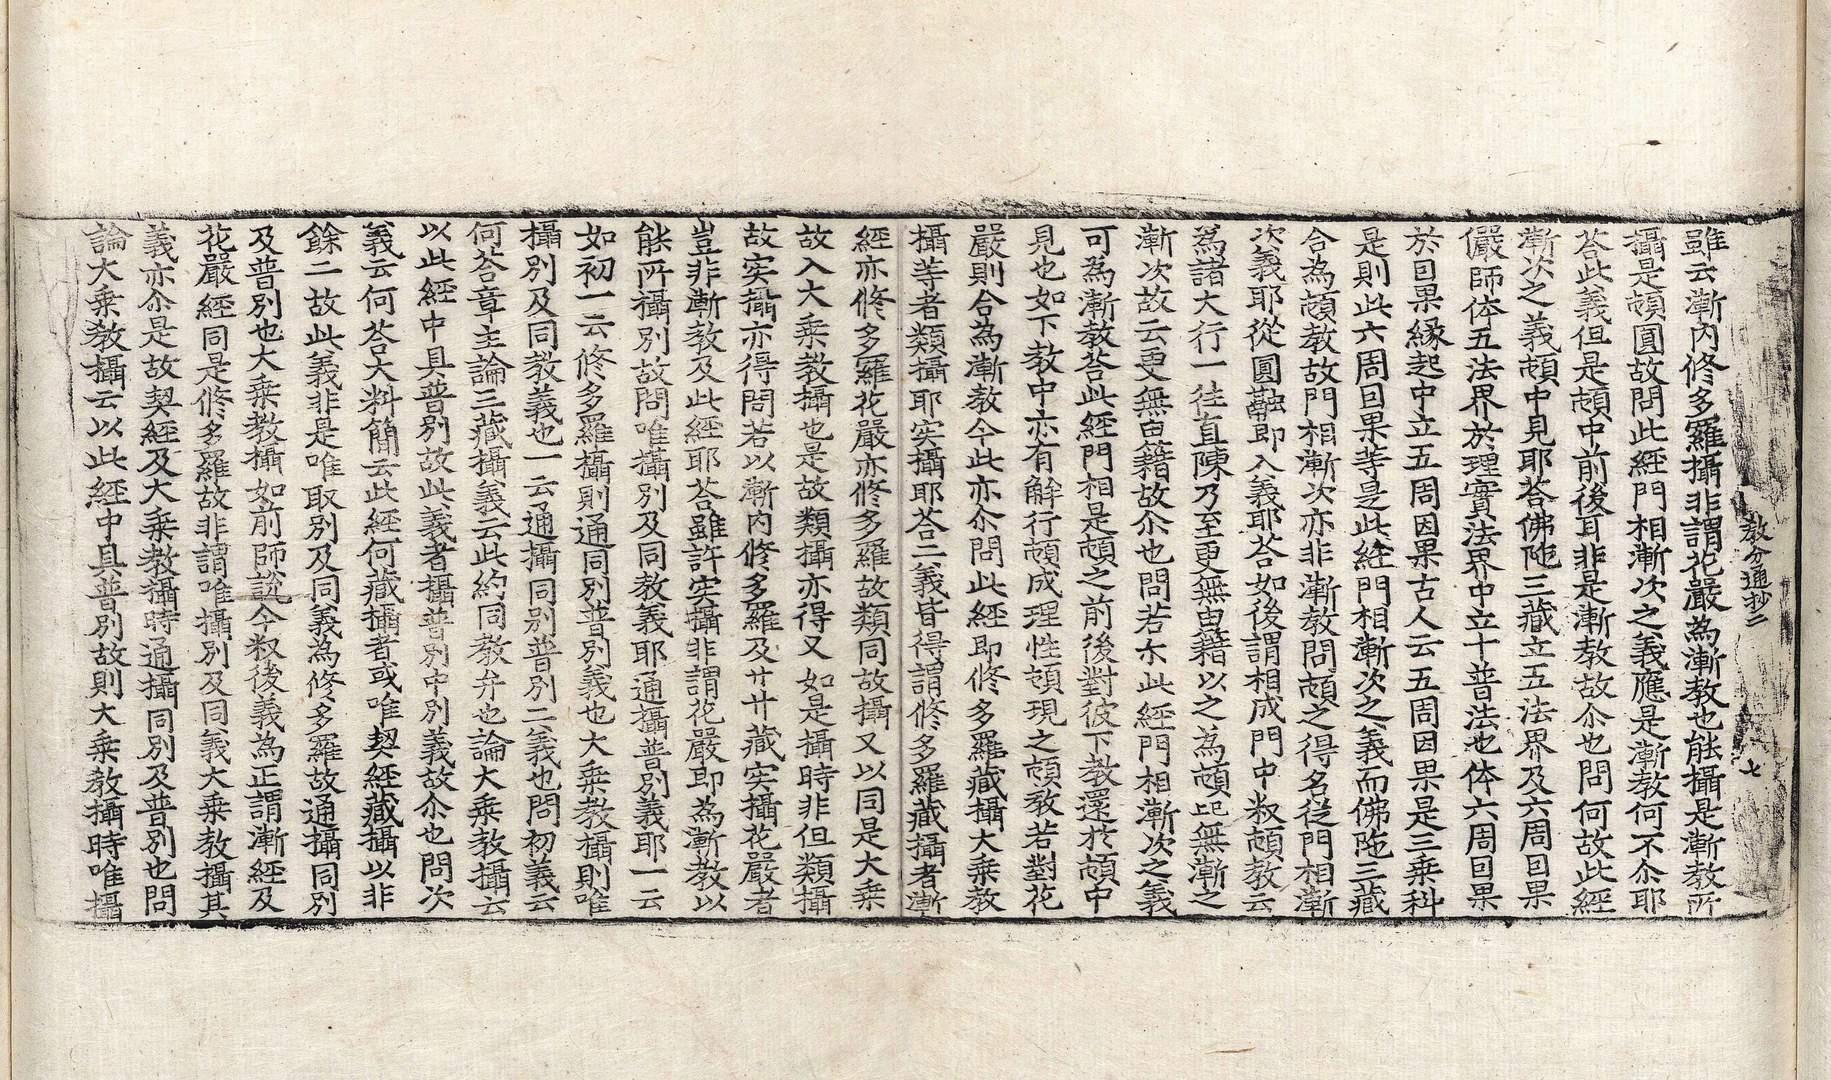 教分通抄二　七
雖云漸內修多羅攝非謂花嚴為漸教也能攝是漸教所
攝是頓圓故問此經門相漸次之義應是漸教何不尒耶
荅此義但是頓中前後耳非是漸教故尒也問何故此經
漸次之義頓中見耶荅佛陁三藏立五法界及六周囙果
儼師体五法界於理實法界中立十普法也体六周囙果
於囙果緣起中立五周因果古人云五周因果是三乗科
是則此六周囙果等是此經門相漸次之義而佛陁三藏
合為頓教故門相漸次亦非漸教問頓之得名從門相漸
次義耶從圓融即入義耶荅如後謂相成門中叙頓教云
為諸大行一徃直陳乃至更無由籍以之為頓記無漸之
漸次故云更無由籍故尒也問若尒此經門相漸次之義
可為漸教荅此經門相是頓之前後對彼下教還於頓中
見也如下教中亦有解行頓成理性頓現之頓教若對花
嚴則合為漸教今此亦尒問此經即修多羅藏攝大乗教
攝等者類攝耶实攝耶荅二義皆得謂修多羅藏攝者漸
經亦修多羅花嚴亦修多羅故類同故攝又以同是大乗
故入大乗教攝也是故類攝亦得又如是攝時非但類攝
故实攝亦得問若以漸內修多羅及廾廾藏实攝花嚴者
豈非漸教及此經耶荅雖許实攝非謂花嚴即為漸教以
能所攝別故問唯攝別及同教義耶通攝普別義耶一云
如初一云修多羅攝則通同別普別義也大乗教攝則唯
攝別及同教義也一云通攝同別普別二義也問初義云
何荅章主論三藏攝義云此約同教弁也論大乗教攝云
以此經中具普別故此義者攝普別中別義故尒也問次
義云何荅大料簡云此經何藏攝者或唯契經藏攝以非
餘二故此義非是唯取別及同義為修多羅故通攝同別
及普別也大乗教攝如前師說今叙後義為正謂漸經及
花嚴經同是修多羅故非謂唯攝別及同義大乗教攝其
義亦尒是故契經及大乗教攝時通攝同別及普別也問
論大乗教攝云以此經中具普別故則大乗教攝時唯攝